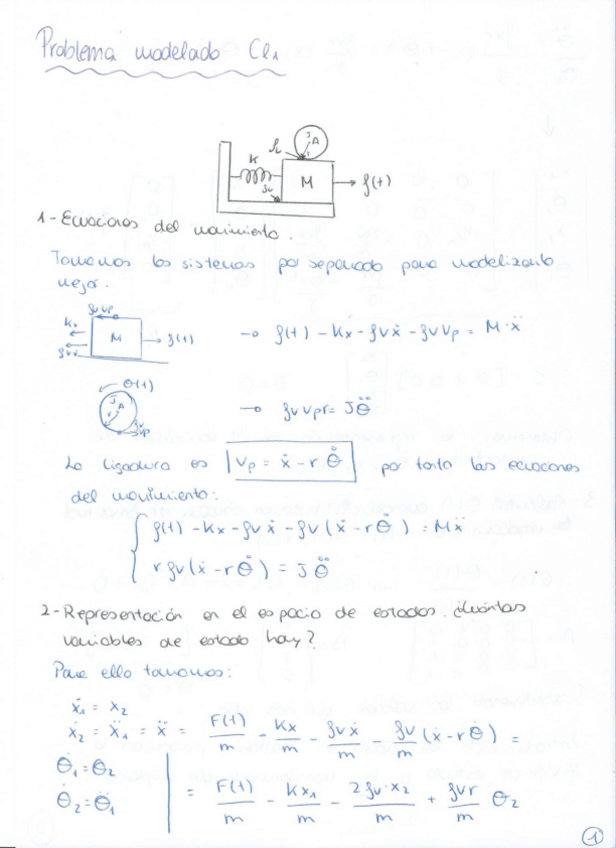 Problema modelado Cl1
fv
J
A
r
K
M
f(t)
fv
1- Ecuaciones del movimiento.
Tomamos los sistemas por separado para modelizarlo
mejor.
fv vp
Kx
M
f(t)
fv ẋ
→ f(t) - Kx - fvẋ - fvvp = M·ẍ
θ(t)
J
A
r
fv
vp
→ fv vp r = Jθ̈
La ligadura es vp = ẋ - r θ̇ por tanto las ecuaciones
del movimiento:
f(t) - Kx - fvẋ - fv(ẋ - rθ̇) = Mẍ
r fv(ẋ - rθ̇) = J θ̈
2- Representación en el espacio de estados. ¿Cuántas
variables de estado hay?
Para ello tomamos:
ẋ1 = x2
ẋ2 = ẍ1 = ẍ = F(t)/m - Kx/m - fvẋ/m - fv/m (ẋ - rθ̇) =
θ̇1 = θ2
θ̇2 = θ̈1
= F(t)/m - Kx1/m - 2fv·x2/m + fvr/m θ2
1